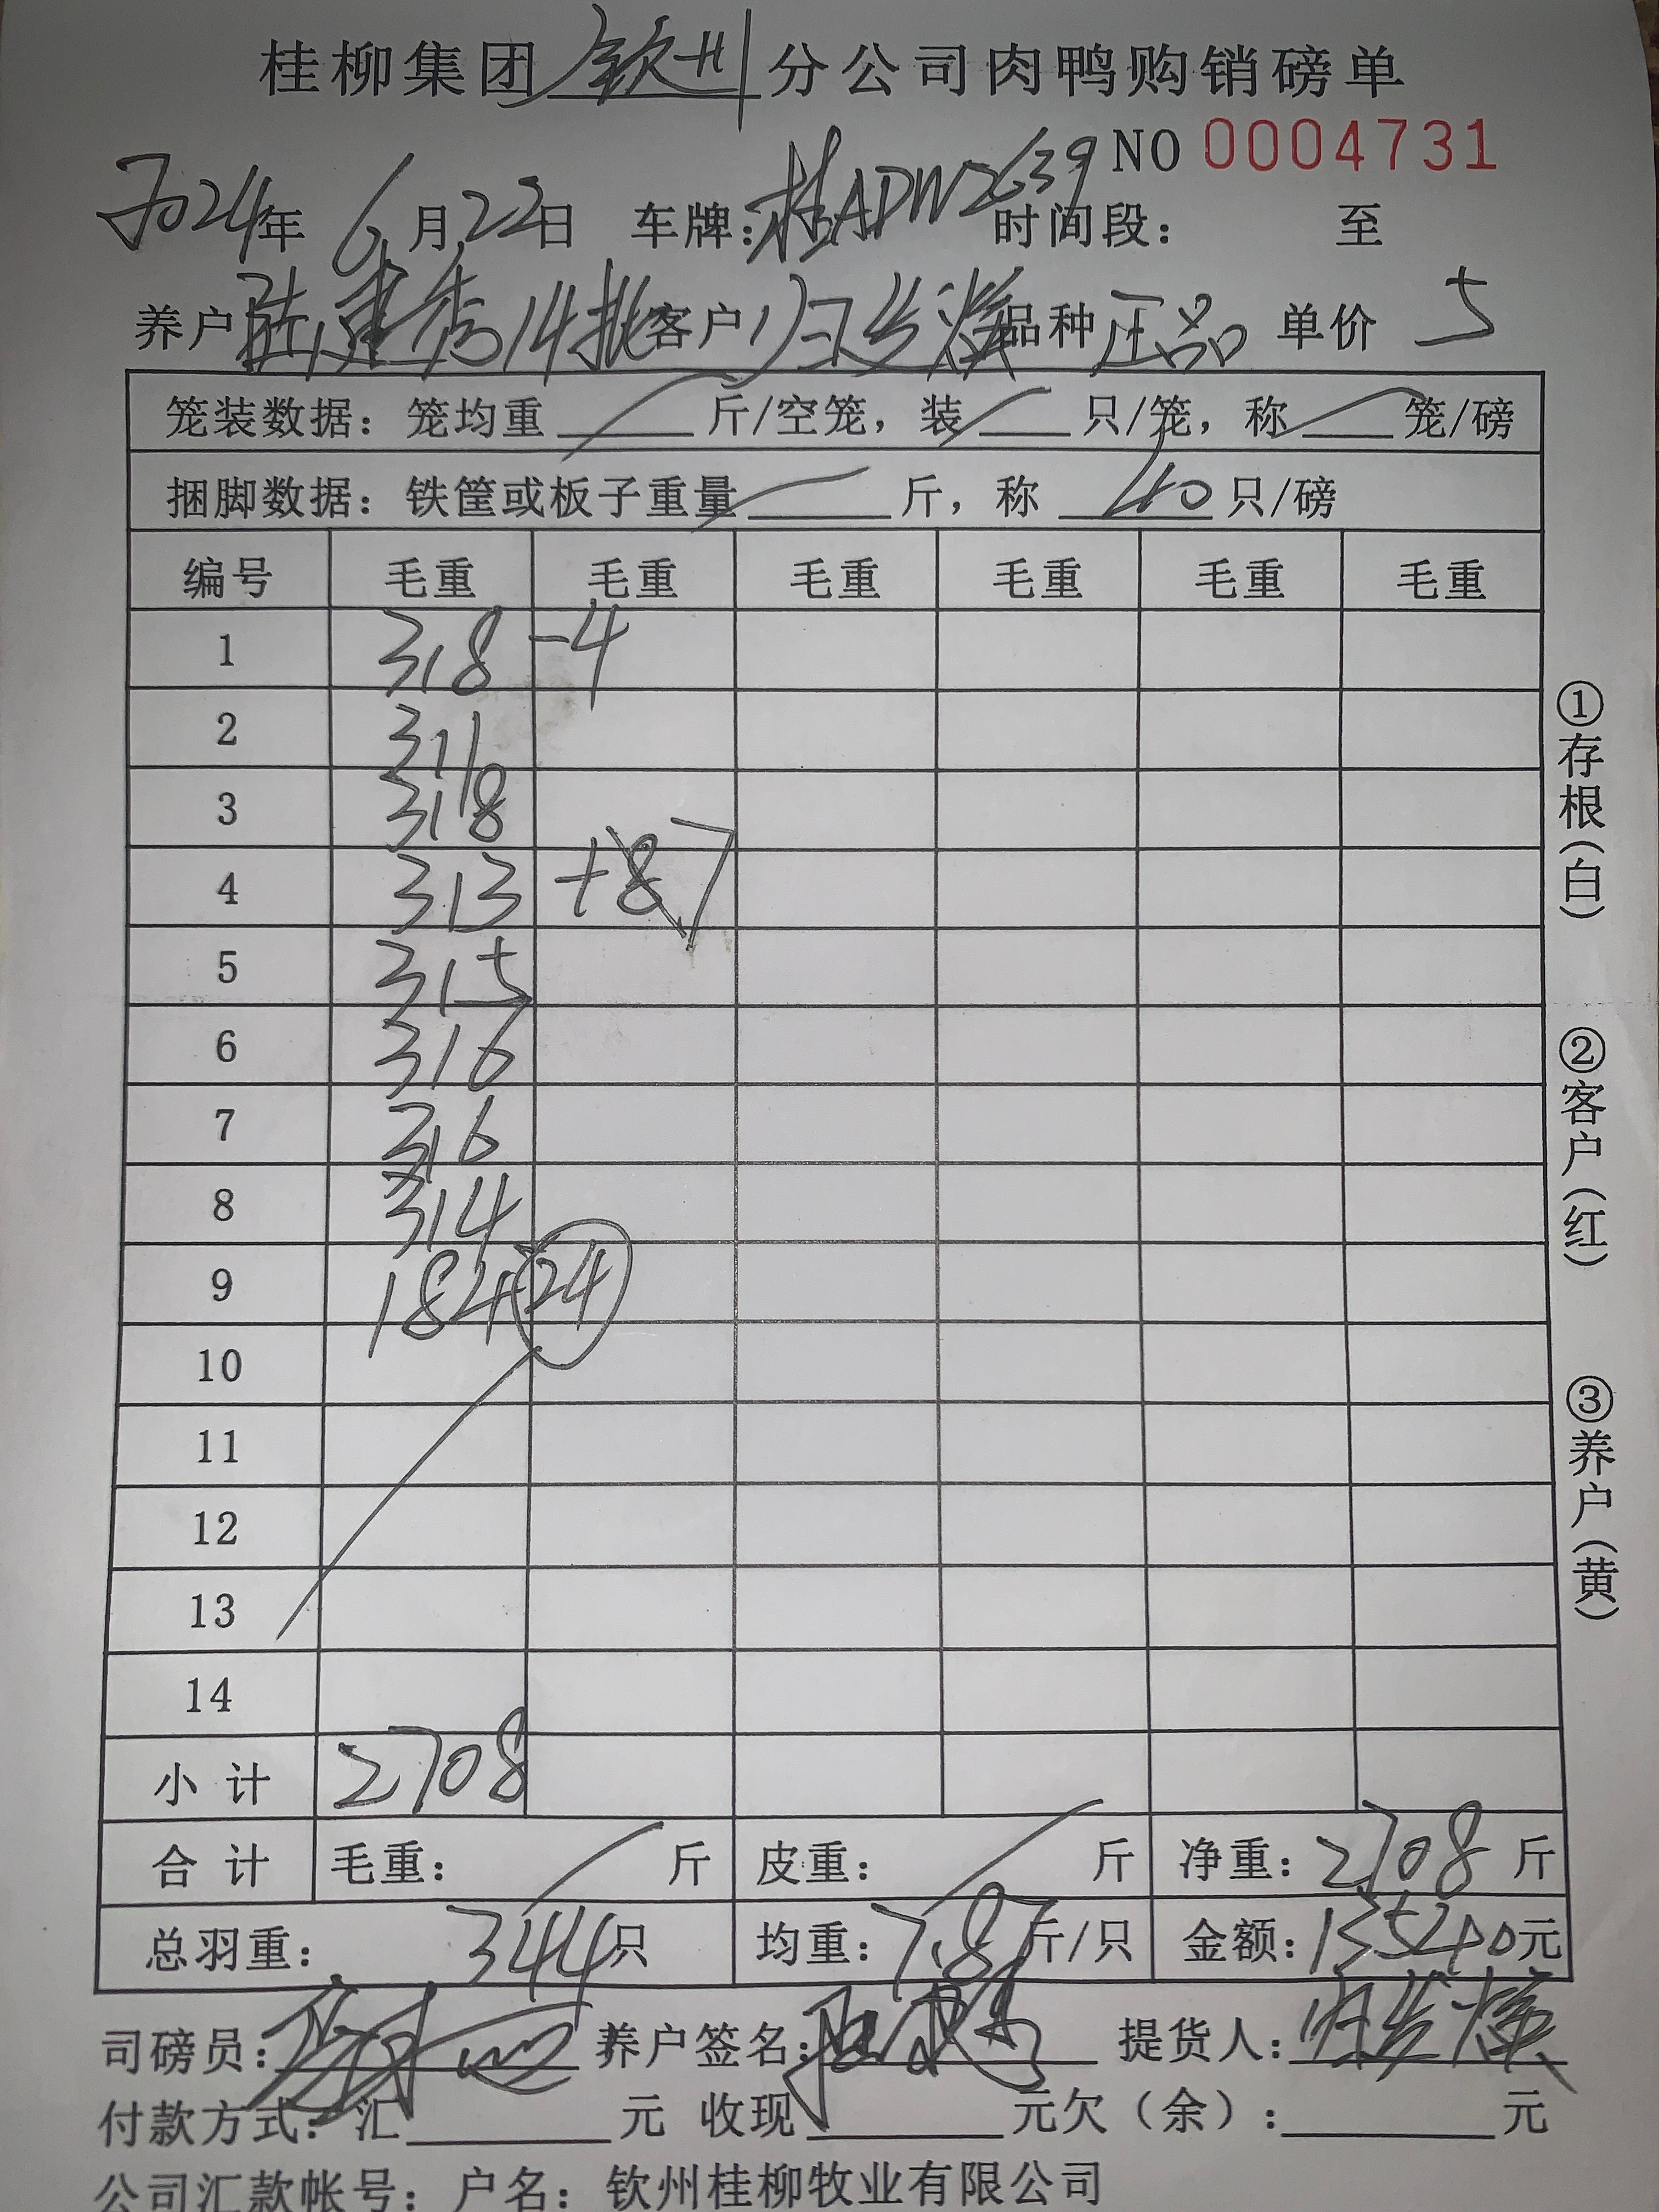 桂柳集团钦州分公司肉鸭购销磅单
NO 0004731
2024年 6月22日 车牌：桂ADW2639 时间段： 至
养户 陆建秀14批 客户 归发烘 品种 正品 单价 5
笼装数据：笼均重 斤/空笼，装 只/笼，称 笼/磅
捆脚数据：铁筐或板子重量 斤，称 40 只/磅
编号 毛重 毛重 毛重 毛重 毛重 毛重
1 318 -4
2 311
3 318
4 313 +8 7
5 315
6 316
7 316
8 314
9 184 24
10
11
12
13
14
小计 2708
合计 毛重： 斤 皮重： 斤 净重：2708 斤
总羽重： 344只 均重：7.87斤/只 金额：13540.0元
司磅员： 养户签名： 提货人：
付款方式：汇 元 收现 元欠（余）： 元
公司汇款帐号：户名：钦州桂柳牧业有限公司
①存根（白）
②客户（红）
③养户（黄）